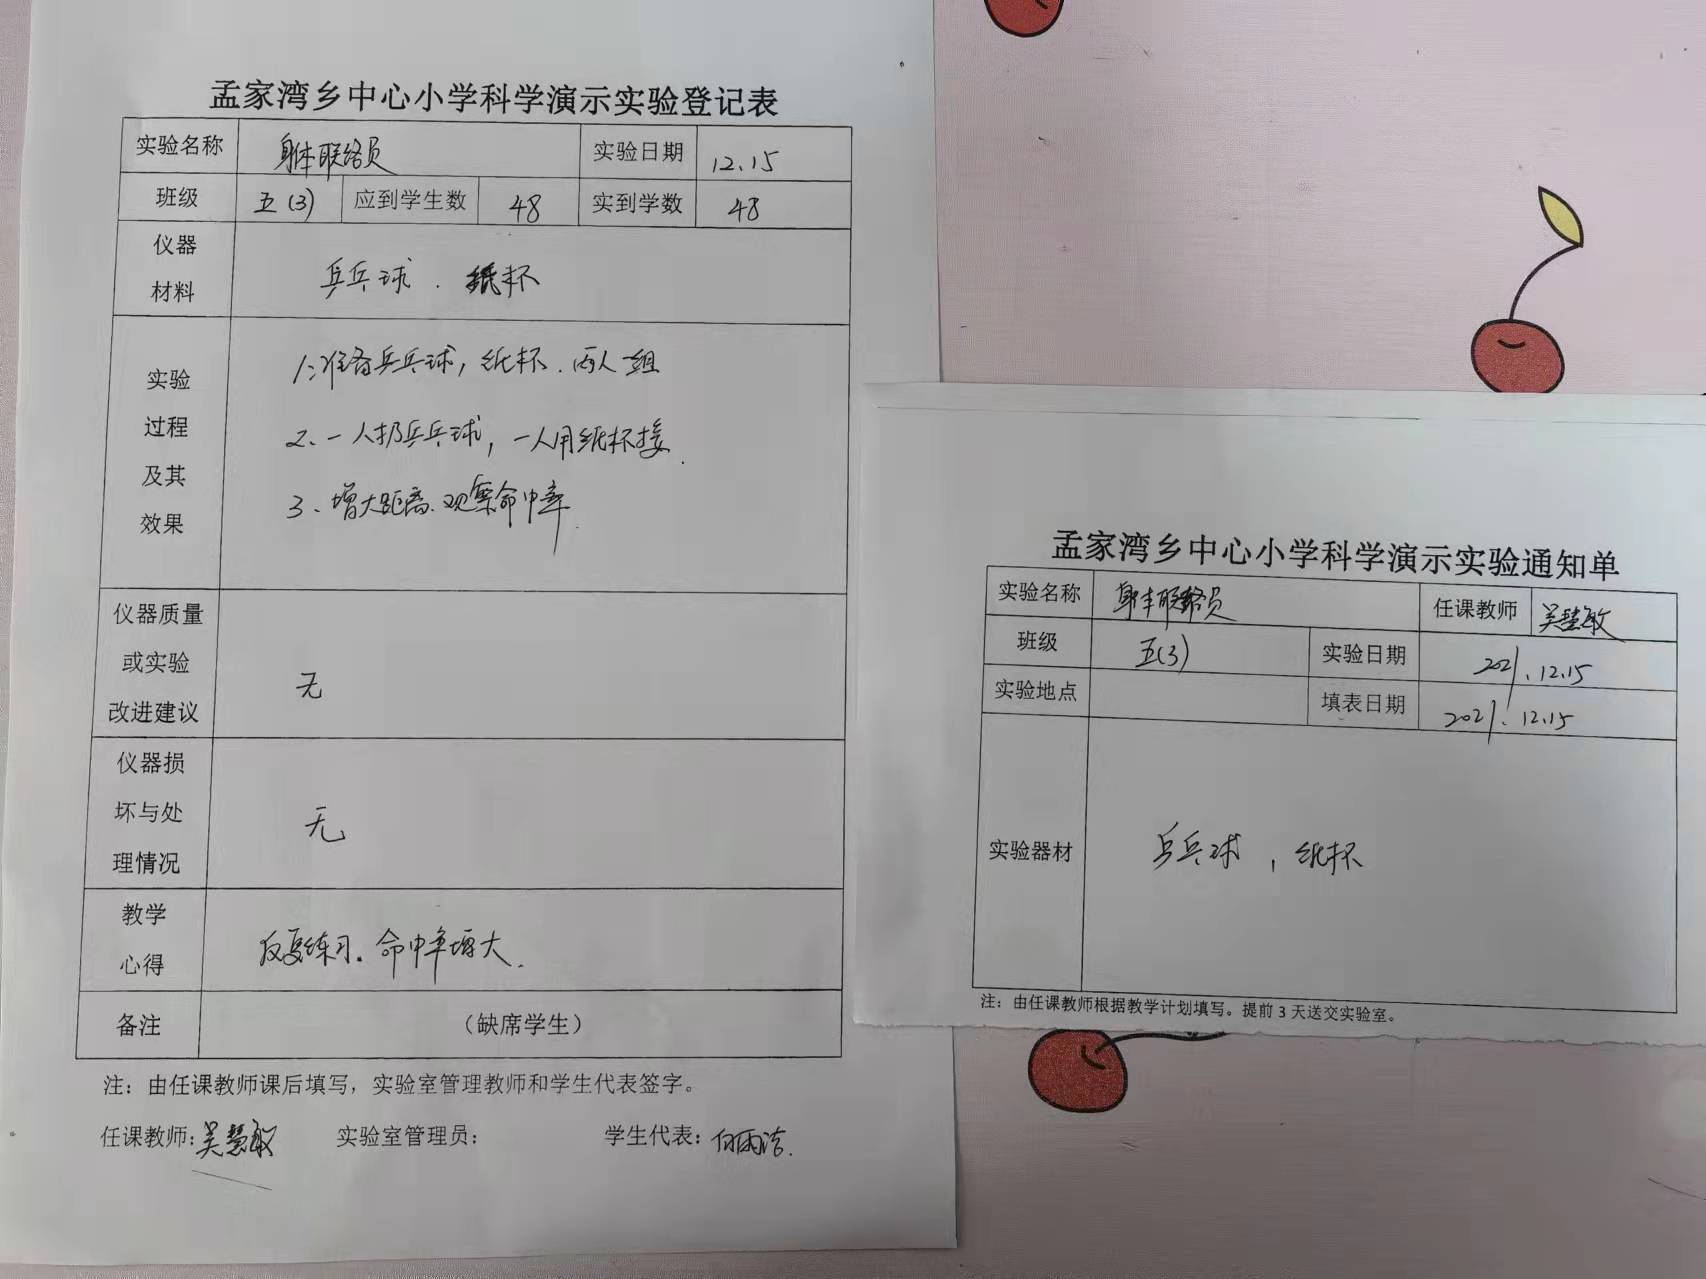 孟家湾乡中心小学科学演示实验登记表
实验名称 身体联络员 实验日期 12.15
班级 五(3) 应到学生数 48 实到学数 48
仪器
材料
乒乓球、纸杯
实验
过程
及其
效果
1、准备乒乓球，纸杯、两人一组
2、一人扔乒乓球，一人用纸杯接.
3、增大距离、观察命中率.
仪器质量
或实验
改进建议
无
仪器损
坏与处
理情况
无
教学
心得
反复练习、命中率增大.
备注 （缺席学生）
注：由任课教师课后填写，实验室管理教师和学生代表签字。
任课教师:吴慧敏 实验室管理员: 学生代表:
孟家湾乡中心小学科学演示实验通知单
实验名称 身体联络员 任课教师 吴慧敏
班级 五(3) 实验日期 2021.12.15
实验地点 填表日期 2021.12.15
实验器材 乒乓球，纸杯
注：由任课教师根据教学计划填写。提前3天送交实验室。